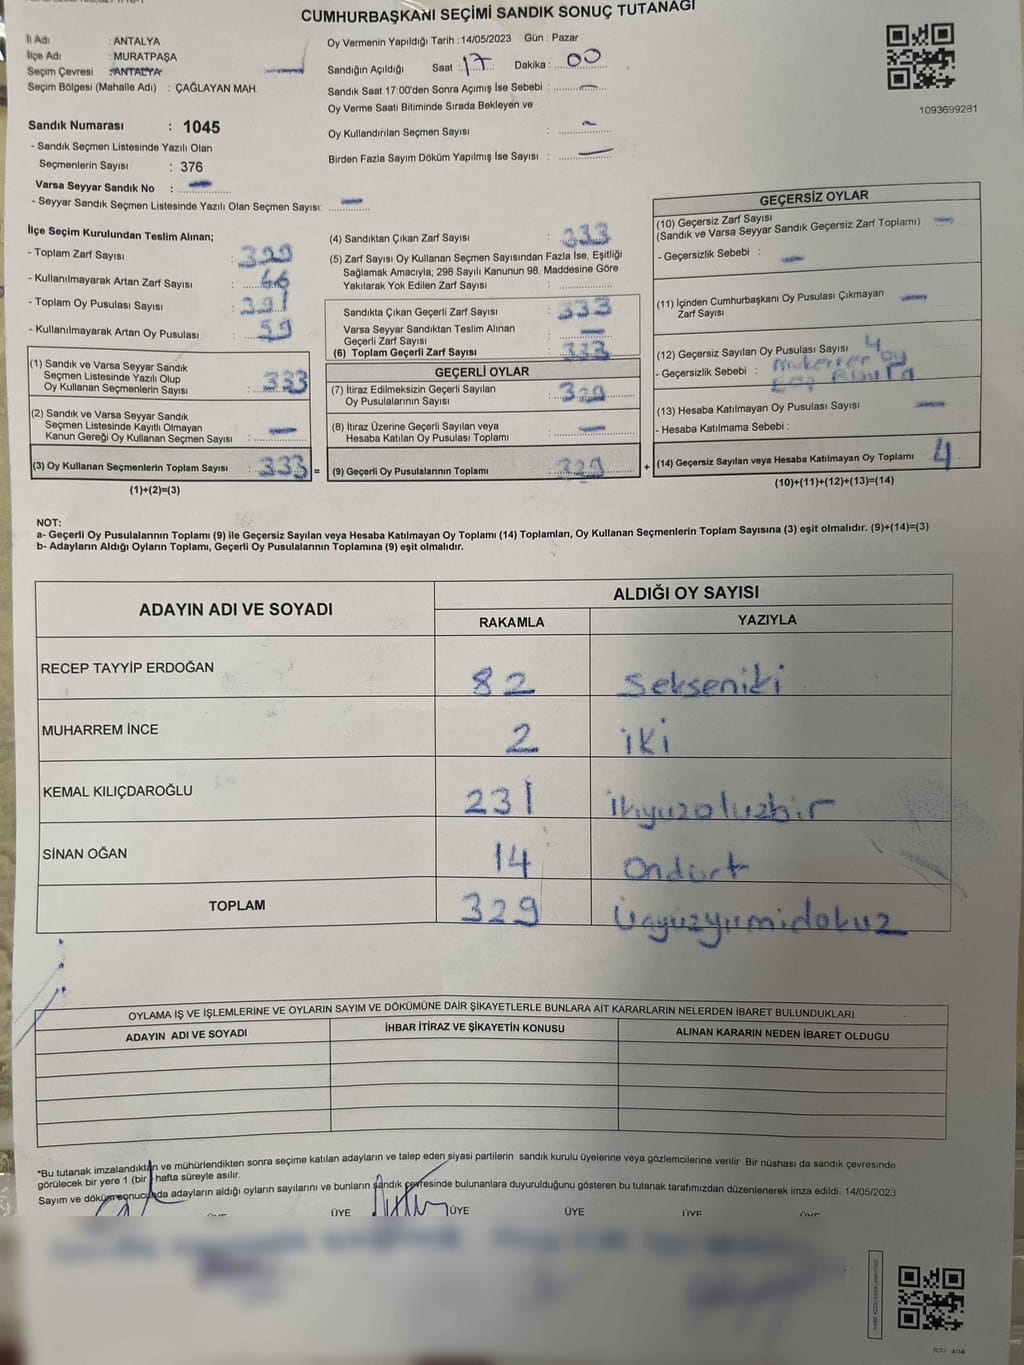 CUMHURBAŞKANI SEÇİMİ SANDIK SONUÇ TUTANAĞI
İl Adı : ANTALYA
İlçe Adı : MURATPAŞA
Seçim Çevresi : ANTALYA
Seçim Bölgesi (Mahalle Adı) : ÇAĞLAYAN MAH.
Oy Vermenin Yapıldığı Tarih : 14/05/2023 Gün : Pazar
Sandığın Açıldığı Saat : 17 Dakika : 00
Sandık Saat 17:00'den Sonra Açımış İse Sebebi : —
Oy Verme Saati Bitiminde Sırada Bekleyen ve
Oy Kullandırılan Seçmen Sayısı : —
Birden Fazla Sayım Döküm Yapılmış İse Sayısı : —
1093699281
Sandık Numarası : 1045
- Sandık Seçmen Listesinde Yazılı Olan
Seçmenlerin Sayısı : 376
Varsa Seyyar Sandık No : —
- Seyyar Sandık Seçmen Listesinde Yazılı Olan Seçmen Sayısı: —
İlçe Seçim Kurulundan Teslim Alınan;
- Toplam Zarf Sayısı : 399
- Kullanılmayarak Artan Zarf Sayısı : 66
- Toplam Oy Pusulası Sayısı :
- Kullanılmayarak Artan Oy Pusulası : 59
(1) Sandık ve Varsa Seyyar Sandık
Seçmen Listesinde Yazılı Olup
Oy Kullanan Seçmenlerin Sayısı : 333
(2) Sandık ve Varsa Seyyar Sandık
Seçmen Listesinde Kayıtlı Olmayan
Kanun Gereği Oy Kullanan Seçmen Sayısı : —
(3) Oy Kullanan Seçmenlerin Toplam Sayısı : 333 =
(1)+(2)=(3)
(4) Sandıktan Çıkan Zarf Sayısı : 333
(5) Zarf Sayısı Oy Kullanan Seçmen Sayısından Fazla İse, Eşitliği
Sağlamak Amacıyla; 298 Sayılı Kanunun 98. Maddesine Göre
Yakılarak Yok Edilen Zarf Sayısı :
Sandıkta Çıkan Geçerli Zarf Sayısı : 333
Varsa Seyyar Sandıktan Teslim Alınan
Geçerli Zarf Sayısı : —
(6) Toplam Geçerli Zarf Sayısı : 333
GEÇERLİ OYLAR
(7) İtiraz Edilmeksizin Geçerli Sayılan
Oy Pusulalarının Sayısı : 329
(8) İtiraz Üzerine Geçerli Sayılan veya
Hesaba Katılan Oy Pusulası Toplamı : —
(9) Geçerli Oy Pusulalarının Toplamı 329 +
GEÇERSİZ OYLAR
(10) Geçersiz Zarf Sayısı —
(Sandık ve Varsa Seyyar Sandık Geçersiz Zarf Toplamı)
- Geçersizlik Sebebi : —
(11) İçinden Cumhurbaşkanı Oy Pusulası Çıkmayan —
Zarf Sayısı
(12) Geçersiz Sayılan Oy Pusulası Sayısı 4
- Geçersizlik Sebebi : mükerrer oy
(13) Hesaba Katılmayan Oy Pusulası Sayısı —
- Hesaba Katılmama Sebebi :
(14) Geçersiz Sayılan veya Hesaba Katılmayan Oy Toplamı 4
(10)+(11)+(12)+(13)=(14)
NOT:
a- Geçerli Oy Pusulalarının Toplamı (9) ile Geçersiz Sayılan veya Hesaba Katılmayan Oy Toplamı (14) Toplamları, Oy Kullanan Seçmenlerin Toplam Sayısına (3) eşit olmalıdır. (9)+(14)=(3)
b- Adayların Aldığı Oyların Toplamı, Geçerli Oy Pusulalarının Toplamına (9) eşit olmalıdır.
ADAYIN ADI VE SOYADI ALDIĞI OY SAYISI
RAKAMLA YAZIYLA
RECEP TAYYİP ERDOĞAN 82 Sekseniki
MUHARREM İNCE 2 iki
KEMAL KILIÇDAROĞLU 231 ikiyüzotuzbir
SİNAN OĞAN 14 Ondört
TOPLAM 329 Üçyüzyirmidokuz
OYLAMA İŞ VE İŞLEMLERİNE VE OYLARIN SAYIM VE DÖKÜMÜNE DAİR ŞİKAYETLERLE BUNLARA AİT KARARLARIN NELERDEN İBARET BULUNDUKLARI
ADAYIN ADI VE SOYADI İHBAR İTİRAZ VE ŞİKAYETİN KONUSU ALINAN KARARIN NEDEN İBARET OLDUĞU
*Bu tutanak imzalandıktan ve mühürlendikten sonra seçime katılan adayların ve talep eden siyasi partilerin sandık kurulu üyelerine veya gözlemcilerine verilir .Bir nüshası da sandık çevresinde
görülecek bir yere 1 (bir) hafta süreyle asılır.
Sayım ve döküm sonucunda adayların aldığı oyların sayılarını ve bunların sandık çevresinde bulunanlara duyurulduğunu gösteren bu tutanak tarafımızdan düzenlenerek imza edildi. 14/05/2023
ÜYE ÜYE ÜYE ÜYE